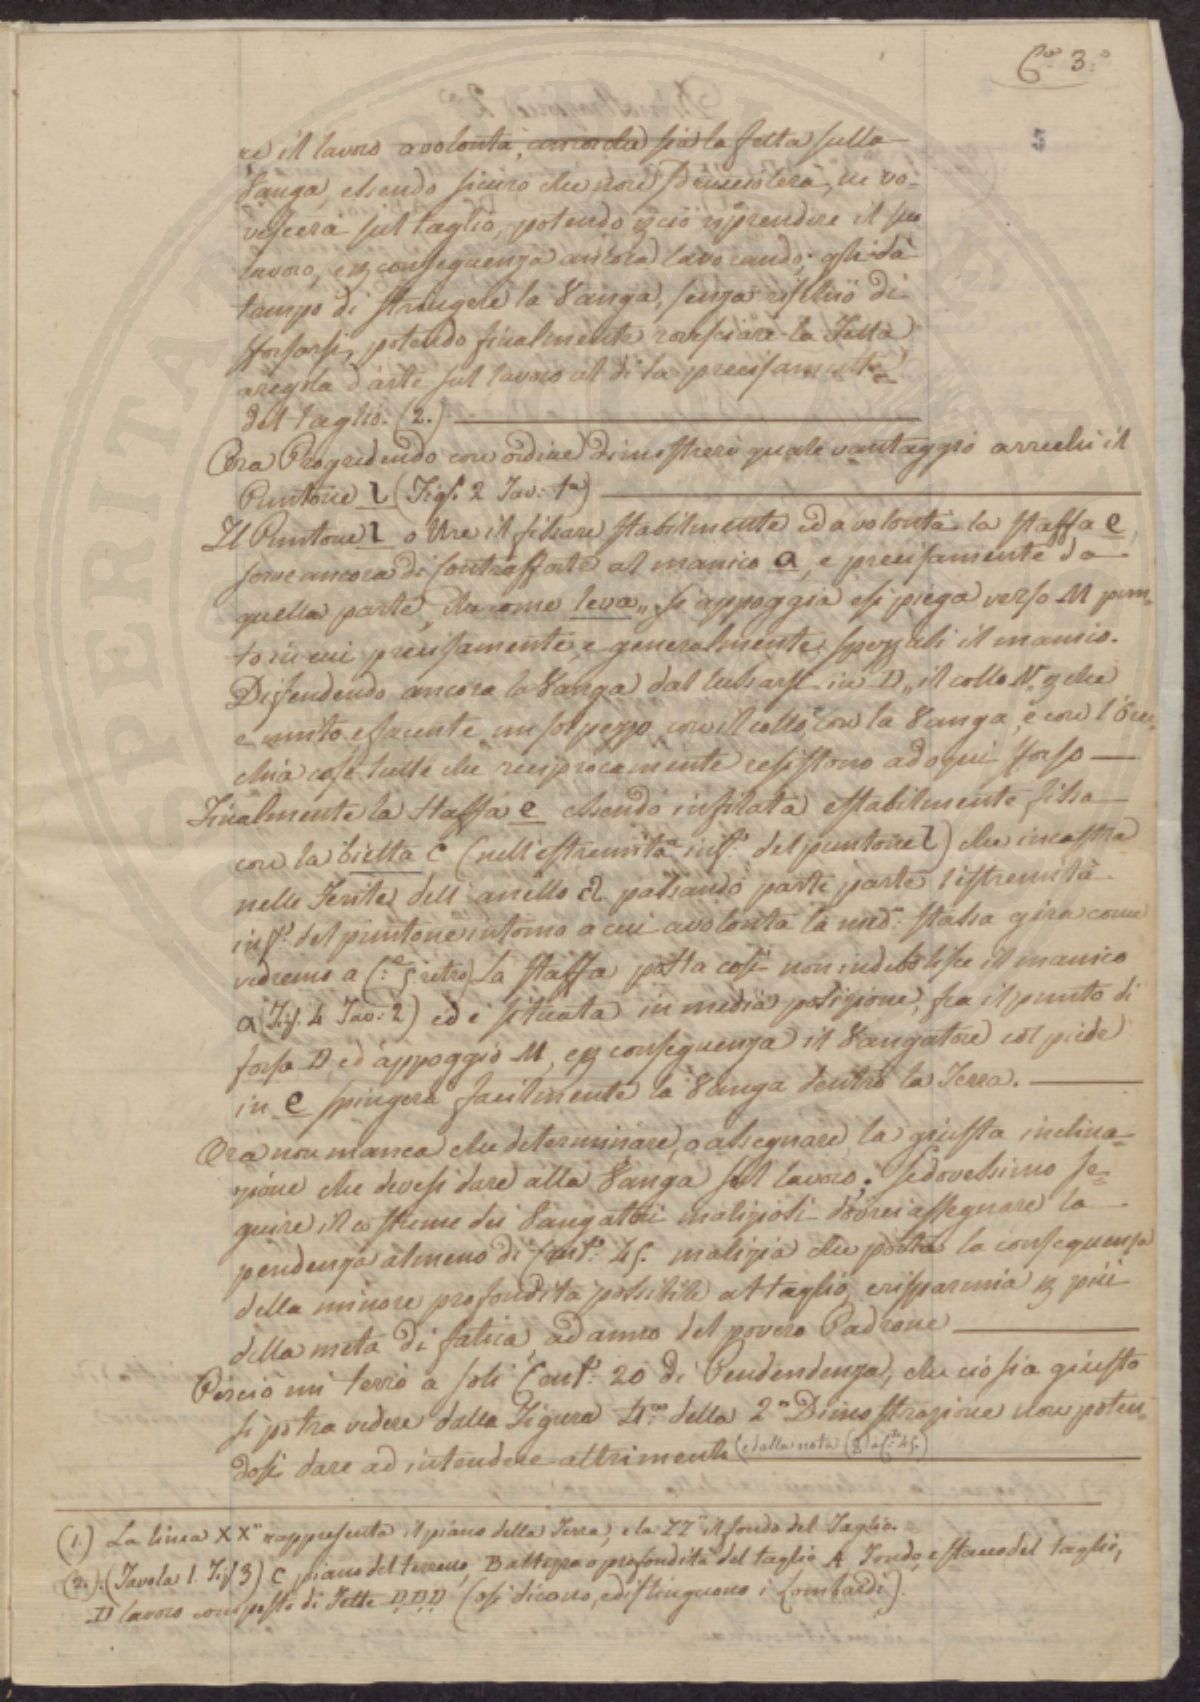 C.a 3.a
5
re il lavoro a volontà, sia la fetta sulla
Vanga, essendo sicuro che non sdrucciolerà, ne ro-
vescerà sul taglio, potendo per ciò riprendere il suo
lavoro, e per conseguenza ancora lavorando, gli dà
tempo di stringere la Vanga, senza rischio di
sforsarsi, potendo finalmente rovesciare la Fetta
a regola d'arte sul lavoro al di la precisamente
del taglio. (2.)
Ora Progredendo con ordine dimostrerò quale vantaggio arrechi il
Puntone l (Fig. 2 Tav. 1a)
Il Puntone l oltre il fissare stabilmente ed a volontà la staffa e,
serve ancora di contrafforte al manico a, e precisamente da
quella parte, che come leva,, si appoggia e si piega verso M pun-
to in cui precisamente, e generalmente spezzasi il manico.
Difendendo ancora la Vanga dal in D,, il collo N, per che
è unito, e facente un sol pezzo con il collo, con la Vanga, e con l'Orec-
chia cose tutte che reciprocamente resistono ad ogni sforso
Finalmente la Staffa e essendo infilata e stabilmente fissa
con la bietta c (nell'estremità inf. del puntone l) che incastra
nelle Ferite dell'anello d passando parte parte l'estremità
inf. del puntone intorno a cui a volontà la med. staffa gira come
vedremo a (C. 5 retro) La staffa posta così non indebolisce il manico
a (Fig. 4 Tav. 2) ed è situata in media posizione, fra il punto di
forsa D, ed appoggio M, e per conseguenza il Vangatore col piede
in e spingerà facilmente la Vanga dentro la Terra.
Ora non manca che determinare, o assegnare la giusta inclina-
zione che devesi dare alla Vanga sul lavoro. Se dovessimo se-
guire il costume dei Vangatori maliziosi dovrei assegnare la
pendenza almeno di Cent. 45. malizia che porta la conseguenza
della minore profondità possibile al taglio, e risparmia per più
della metà di fatica, ad anno del povero Padrone
Perciò mi terrò a soli Cent. 20 di Pendendenza, che ciò sia giusto
si potrà vedere dalla Figura 4a della 2a Dimostrazione non poten-
dosi dare ad intendere altrimenti (e dalla nota (3) a C. 45.)
(1.) La linea XX" rappresenta il piano della Terra, e la ZZ" il fondo del Taglio.
(2.) (Tavola 1. Fig 3) C piano del terreno, B altezza o profondità del taglio A Fondo, e del taglio,
D lavoro composto di Fette D.D.D (così dicono, e distinguono i Lombardi).